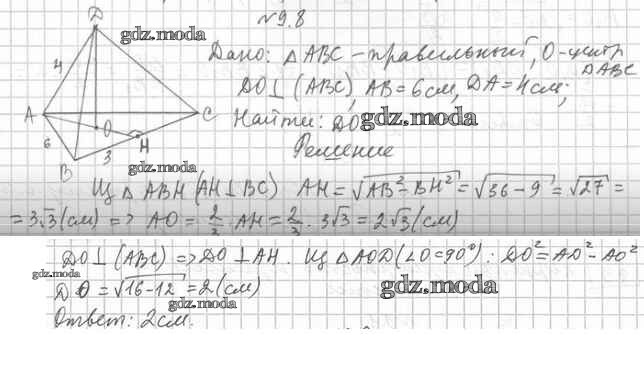 №9.8
D
gdz.moda
Дано: △ABC – правильный, O-центр
△ABC
4
DO⊥(ABC), AB=6см, DA=4см;
A
C
Найти: DO
gdz.moda
O
H
6
B
3
Решение
gdz.moda
Из △ABH (AH⊥BC) AH=√AB²-BH²=√36-9=√27=
=3√3(см) => AO=2/3·AH=2/3·3√3=2√3(см)
DO⊥(ABC)=>DO⊥AH. Из △AOD(∠O=90°): DO²=AD²-AO²
gdz.moda
DO=√16-12=2(см)
gdz.moda
gdz.moda
Ответ: 2см.